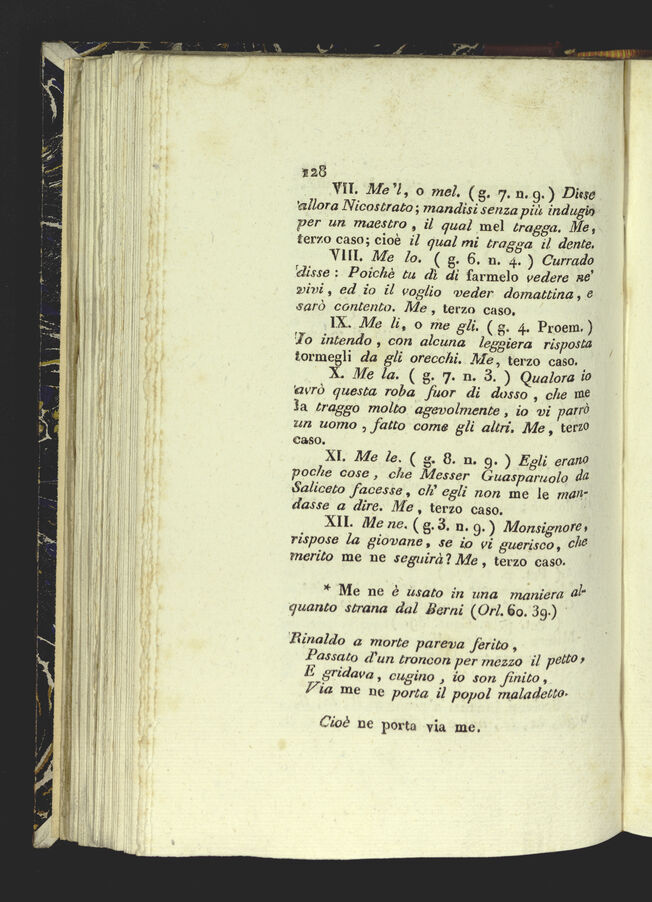 128
VII. Me 'l, o mel. (g. 7. n. 9.) Disse
allora Nicostrato; mandisi senza più indugio
per un maestro, il qual mel tragga. Me,
terzo caso; cioè il qual mi tragga il dente.
VIII. Me lo. ( g. 6. n. 4. ) Currado
disse: Poichè tu dì di farmelo vedere ne'
vivi, ed io il voglio veder domattina, e
sarò contento. Me, terzo caso.
IX. Me li, o me gli. ( g. 4. Proem. )
Io intendo, con alcuna leggiera risposta
tormegli da gli orecchi. Me, terzo caso.
X. Me la. ( g. 7. n. 3. ) Qualora io
avrò questa roba fuor di dosso, che me
la traggo molto agevolmente, io vi parrò
un uomo, fatto come gli altri. Me, terzo
caso.
XI. Me le. ( g. 8. n. 9. ) Egli erano
poche cose, che Messer Guasparuolo da
Saliceto facesse, ch' egli non me le man-
dasse a dire. Me, terzo caso.
XII. Me ne. (g. 3. n. 9.) Monsignore,
rispose la giovane, se io vi guerisco, che
merito me ne seguirà? Me, terzo caso.
* Me ne è usato in una maniera al-
quanto strana dal Berni (Orl. 60. 39.)
Rinaldo a morte pareva ferito,
Passato d'un troncon per mezzo il petto,
E gridava, cugino, io son finito,
Via me ne porta il popol maladetto.
Cioè ne porta via me.